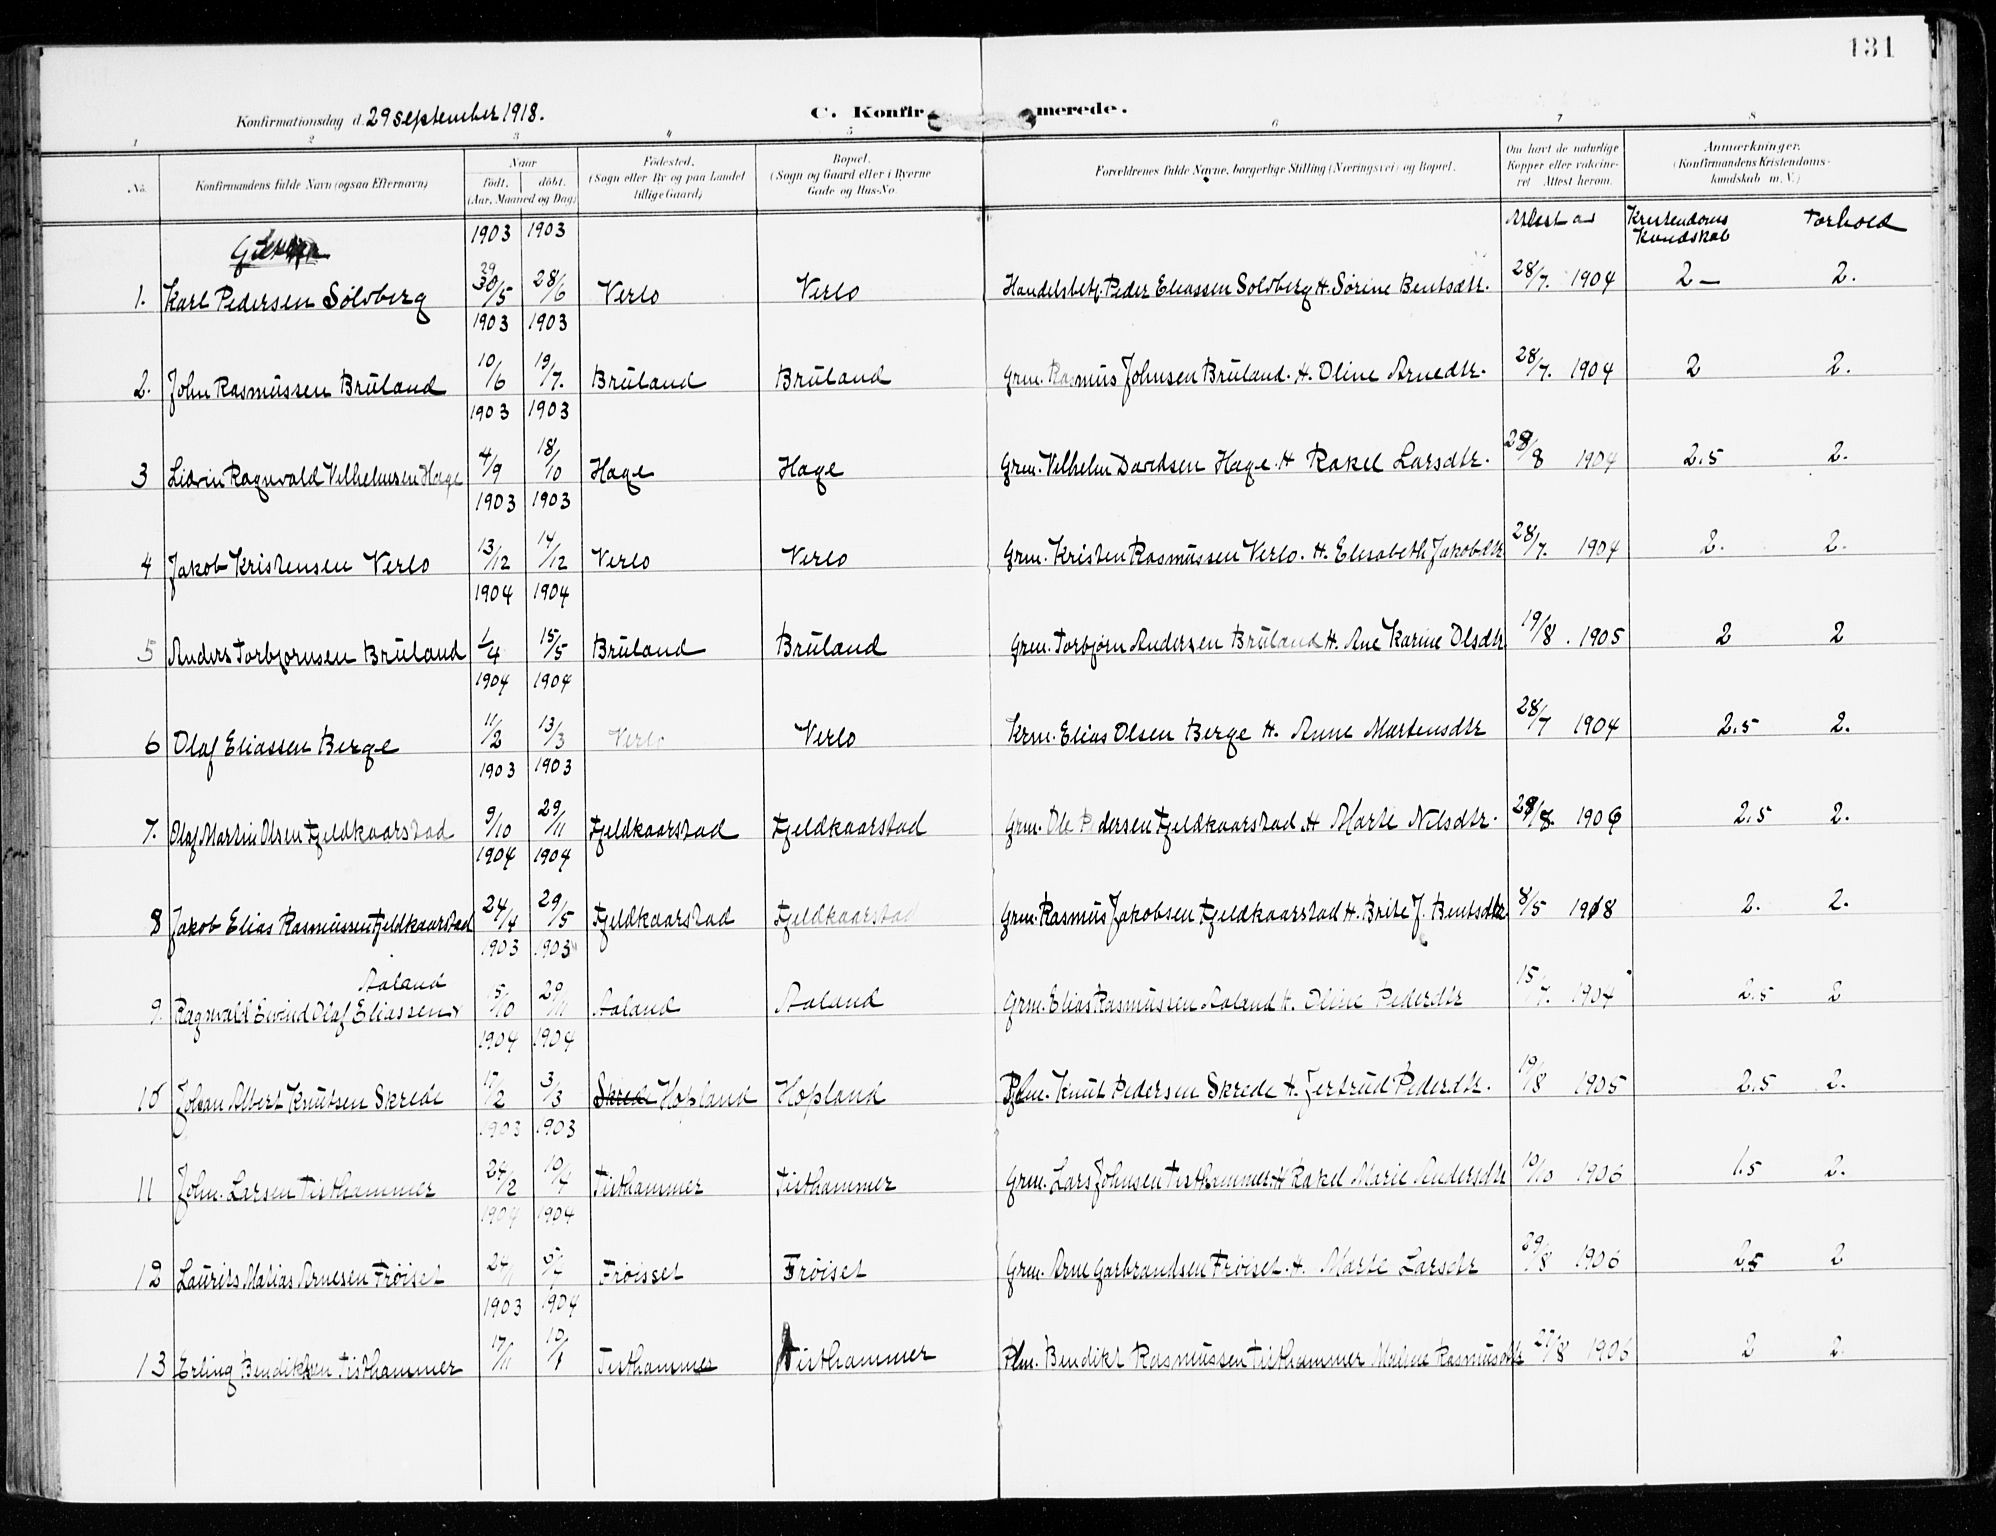 131
Konfirmationsdag d. 29 september 1918.
C. Konfirmerede.
1 2 3 4 5 6 7 8
No. Konfirmandens fulde Navn (ogsaa Efternavn) Naar født, døbt. (Aar, Maaned og Dag) Fødested. (Sogn eller By og paa Landet tillige Gaard) Bopæl. (Sogn og Gaard eller i Byerne Gade og Hus-No. Forældrenes fulde Navne, borgerlige Stilling (Næringsvei) og Bopæl. Om havt de naturlige Kopper eller vaccineret Attest herom. Anmærkninger. (Konfirmandens Kristendomskundskab m. V.)
Attest av Kristendoms Kundskab Forhold
1903 1903
1. Karl Pedersen Sölvberg 29 30/5 28/6 Verlo Verlo Handelsbetj. Peder Eliassen Solvberg H. Sörine Bentsdtr. 28/7. 1904 2– 2.
1903 1903
2. John Rasmussen Bruland 10/6 19/7. Bruland Bruland Grm. Rasmus Johnsen Bruland. H. Oline Arnedtr. 28/7. 1904 2 2.
1903 1903
3 Lidvin Ragnvald Vilhelmsen Hage 4/9 18/10 Hage Hage Grm. Vilhelm Davidsen Hage. H Rakel Larsdtr. 28/8 1904 2.5 2.
1903 1903
4 Jakob Kristensen Verlo 13/12 14/12 Verlo Verlo Grm. Kristen Rasmussen Verlo. H. Elisabeth Jakobdtr 28/7. 1904 2. 2.
1904 1904
5 Anders Torbjornsen Bruland 1/4 15/5 Bruland Bruland Grm. Torbjörn Andersen Bruland H. Ane Karine Olsdtr 19/8. 1905 2 2
1904 1904
6 Olaf Eliassen Berge 11/2 13/3 Verlo Verlo Krm. Elias Olsen Berge H. Anne Martensdtr 28/7 1904 2.5 2.
1903 1903
7. Olaf Martin Olsen Fjeldkaarstad 9/10 29/11 Fjeldkaarstad Fjeldkaarstad Grm. Ole Pedersen Fjeldkaarstad. H Marte Nilsdtr. 29/8. 1906 2.5 2.
1904 1904
8 Jakob Elias Rasmussen Fjeldkaarstad 24/4 29/5 Fjeldkaarstad Fjeldkaarstad Grm. Rasmus Jakobsen Fjeldkaarstad H. Brite J. Bentsdtr 8/5 1918 2. 2.
1903 1903
Aaland
9. Ragnvald Eivind Olaf Eliassen 15/10 29/11 Aaland Aaland Grm. Elias Rasmussen Aaland H. Oline Pederdtr 15/7. 1904 2.5 2
1904 1904
10 Johan Albert Knutsen Skrede 17/2 3/3 Skrede Hopland Hopland Knut Pedersen Skrede H. Jertrud Pederdtr. 19/8 1905 2.5 2.
1903 1903
11 John. Larsen Tisthammer 24/2 19/4 Tisthammer Tisthammer Grm. Lars Johnsen Tisthammer H Rakel Marie Andersdtr 19/10 1906 1.5 2.
1904 1904
12 Laurits Matias Arnesen Fröiset Fröisset Fröiset Grm. Arne Garbrandsen Fröiset. H. Marte Larsdtr 29/8 1906 2.5 2
1903 1904
13 Erling Bendiksen Tisthammer 17/11 10/1 Tisthammer Tisthammer Plm. Bendikt Rasmussen Tisthammer Malene Rasmusdtr 29/8 1906 2 2.